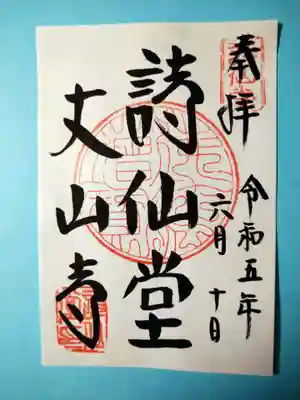 奉拝
令和五年
六月十日
詩仙堂
丈山寺